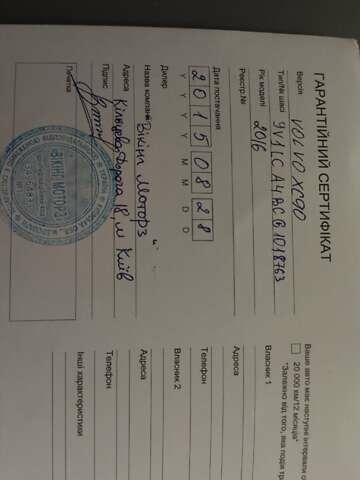 ГАРАНТІЙНИЙ СЕРТИФІКАТ
Версія VOLVO XC90
Тип/№ шасі
Рік моделі 2016
Реєстр.№
Дата постачання
2 0 1 5 0 8 2 8
Y Y Y Y M M D D
Дилер
Назва компанії Вікінг Моторз
Адреса Кільцева Дорога 18, м Київ
Підпис
Печатка
Ваше авто має наступні інтервали о
20 000 км/12 місяців*
*Залежно від того, яка подія тр
Власник 1
Адреса
Телефон
Власник 2
Адреса
Телефон
Інші характеристики